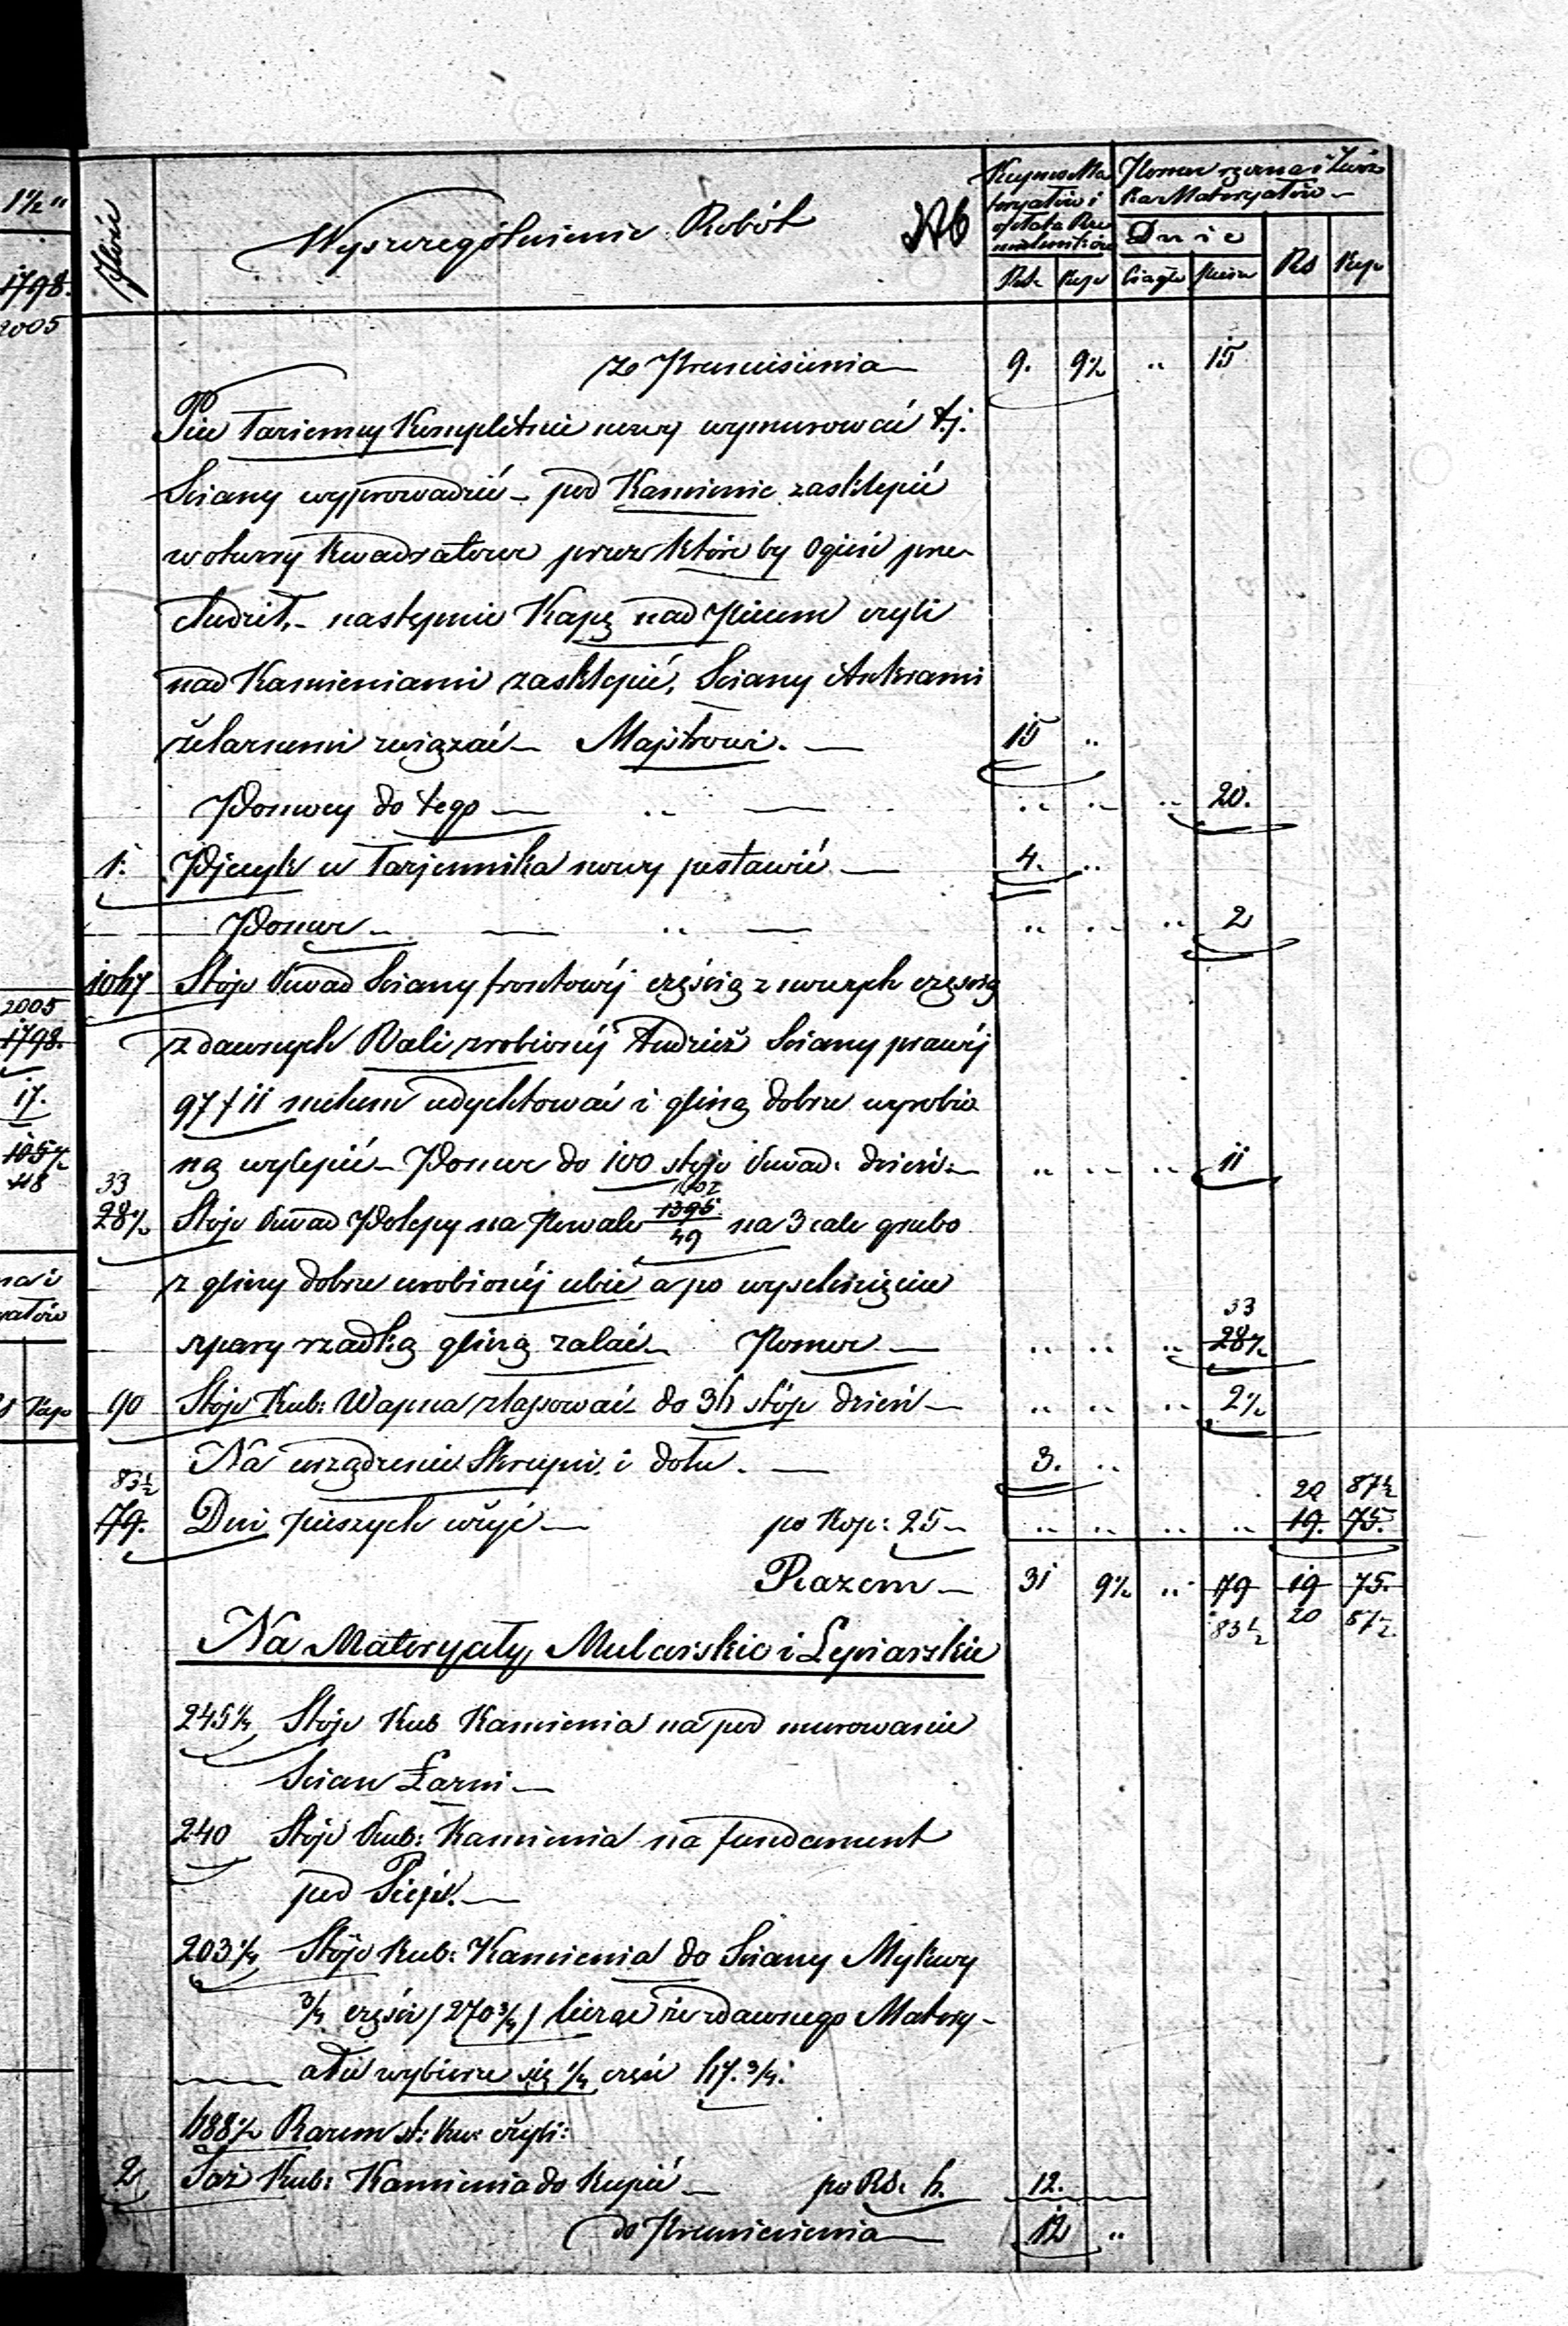 1½"
1798.
2005
Ilość
Wyszczególnienie Robót
Kupno Ma
teryałów i
opłata Rze
mieślników
Pomoc ręczna i Zwóz
ka Materyałów
Dnie
Rs Kop
Ciągłe Piesze
Rs Kop
z Przeniesienia 9. 9½ .. 15
Piec Łaziemny Kompletnie nowy wymurować t.j.
Sciany wyprowadzić pod Kamienie zasklepić
w otwory Kwadratowe przez które by Ogień prze
chodził, następnie Kapę nad Piecem czyli
nad Kamieniami zasklepić, Sciany Ankrami
żelaznemi związać Majstrowi. 15 ..
Pomocy do tego .. .. .. .. 20.
1. Piecyk u Łaziennika nowy postawić 4. ..
Pomoc .. .. .. .. 2
1057 Stóp Kwad Sciany frontowéj częścią z nowych częścią
z dawnych Bali zrobionéj Tudzież Sciany prawéj
97 f 11 mchem udychtować i gliną dobrze wyrobio
2005
1798.
17.
1057½
48
ną wylepić Pomoc do 100 stóp Kwad: dzień .. .. .. 11
33
28½ Stóp Kwad Polepy na Powale 1395 49 na 3 cale grubo
z gliny dobrze urobionéj ubić a po wyschnięciu
33
szpary rzadką gliną zalać Pomoc .. .. .. 28½
90 Stóp Kub: Wapna zlasować do 36 stóp dzień .. .. .. 2½
Na urządzenie Skrzyni i dołu. 3. ..
83½ 20 87½
79. Dni pieszych użyć po Kop: 25 .. .. .. .. 19. 75.
Razem 31 9½ .. 79 19 75.
83½ 20 87½
Na Materyały Mularskie i Lepiarskie
245¼ Stóp Kub Kamienia na pod murowanie
Scian Łazni
240 Stóp Kub: Kamienia na fundament
pod Piec
203¼ Stóp Kub: Kamienia do Sciany
¾ części / 270¾ / licząc że z dawnego Matery-
ału wybierze się ¼ część 67.¾.
688½ Razem st: Ku: czyli:
2 Saż Kub: Kamienia do Kupić po Rs. 6. 12.
do Przeniesienia 12 ..